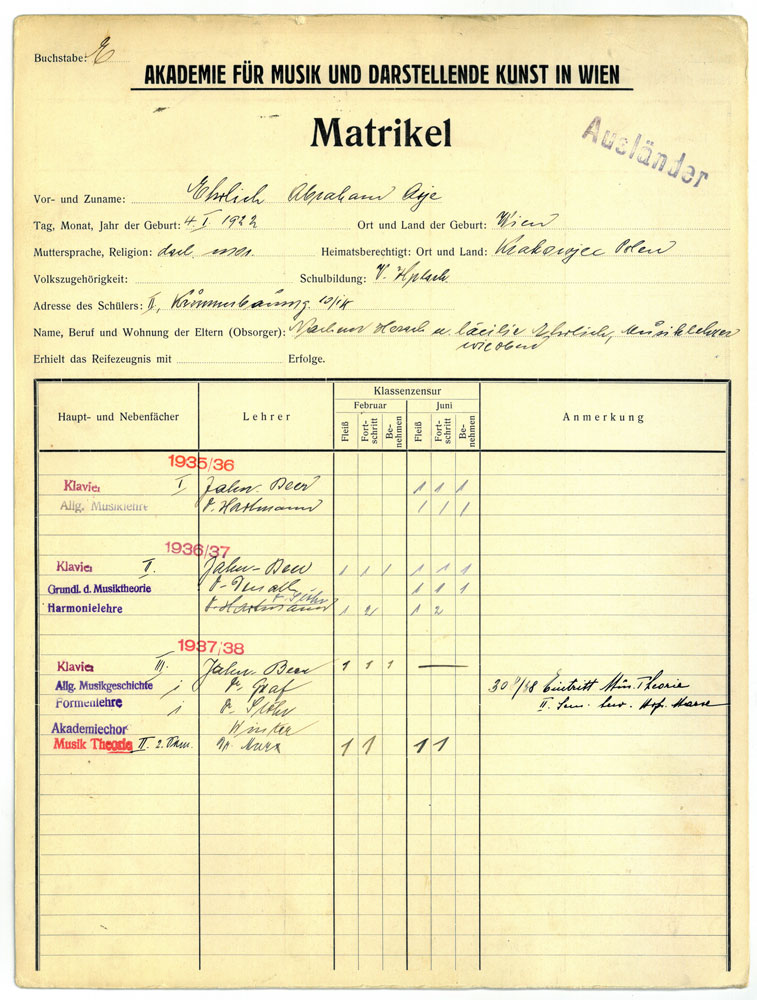 Buchstabe: E
AKADEMIE FÜR MUSIK UND DARSTELLENDE KUNST IN WIEN
Matrikel
Ausländer
Vor- und Zuname: Ehrlich Abraham
Tag, Monat, Jahr der Geburt: 4. I. 1922 Ort und Land der Geburt: Wien
Muttersprache, Religion: Heimatsberechtigt: Ort und Land: Krakowjec Polen
Volkszugehörigkeit: Schulbildung: V.
Adresse des Schülers: II,
Name, Beruf und Wohnung der Eltern (Obsorger): u. Cäcilie Ehrlich, Musiklehrer
wie oben
Erhielt das Reifezeugnis mit Erfolge.
Haupt- und Nebenfächer Lehrer Klassenzensur Anmerkung
Februar Juni
Fleiß Fort-schritt Be-nehmen Fleiß Fort-schritt Be-nehmen
1935/36
Klavier I Jahn-Beer 1 1 1
Allg. Musiklehre Dr. Hartmann 1 1 1
1936/37
Klavier II. Jahn-Beer 1 1 1 1 1 1
Grundl. d. Musiktheorie 1 1 1
Dr. Stöhr
Harmonielehre Dr. Hartmann 1 2 1 2
1937/38
Klavier III. Jahn-Beer 1 1 1 —
Allg. Musikgeschichte Dr. Graf 30 /38 Eintritt Mus. Theorie
Formenlehre Dr. Stöhr II. Sem. Hofr. Marx
Akademiechor Winkler
Musik Theorie II. 2. Sem. Dr. Marx 1 1 1 1